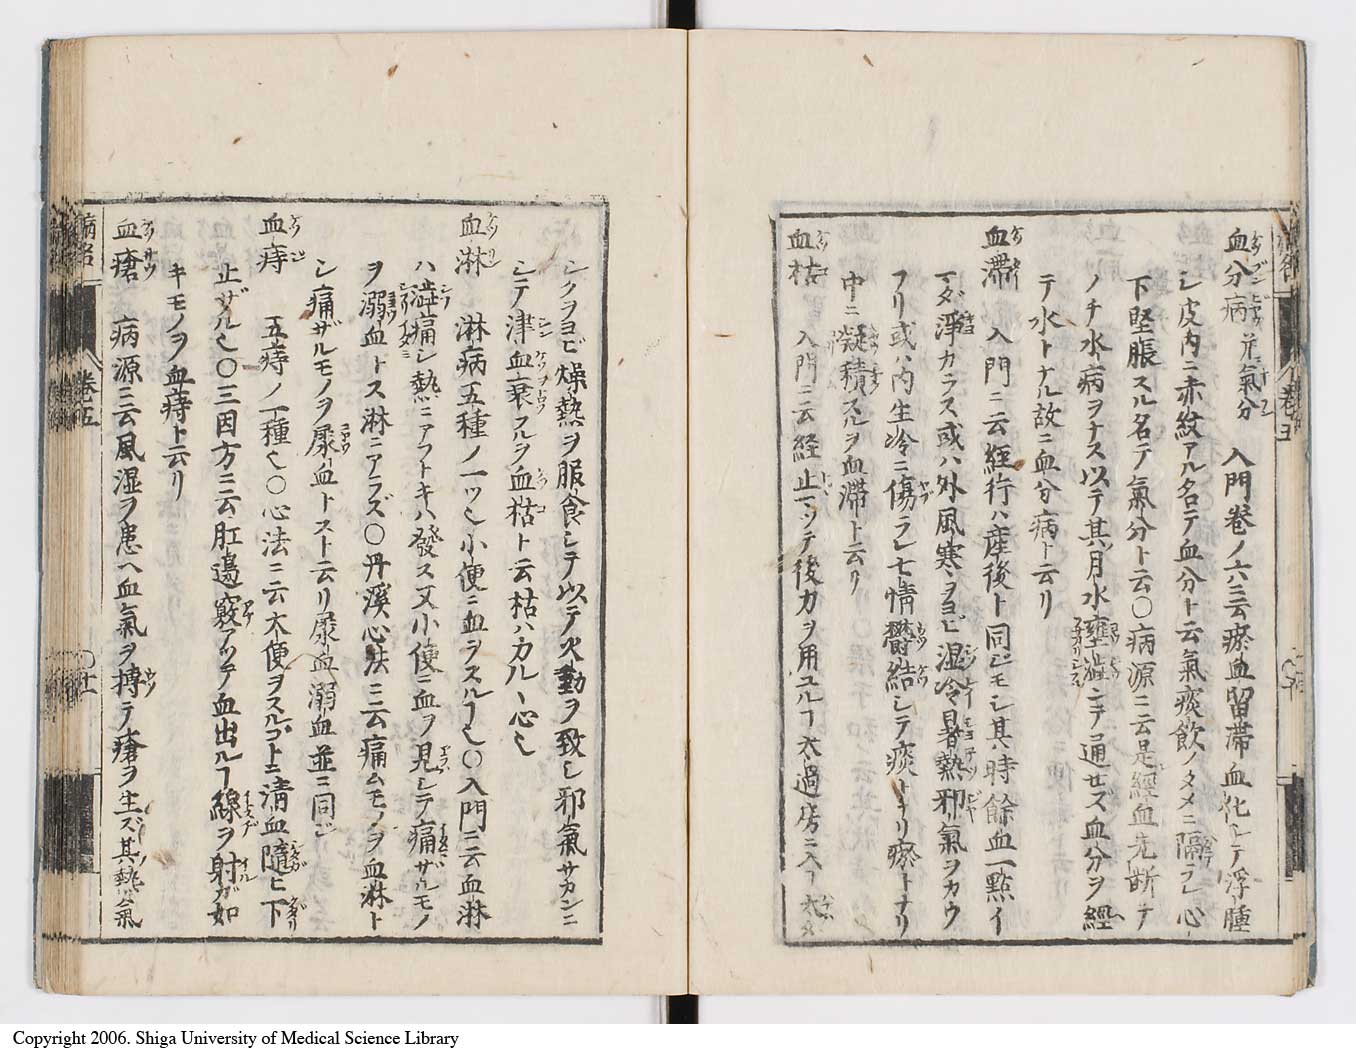 血分病 并氣分 入門卷ノ六ニ云瘀血留滞血化シテ浮腫
シ皮内ニ赤紋アル名テ血分ト云氣痰飲ノタメニ隔ラレ心
下堅脹スル名テ氣分ト云〇病源ニ云是經血先断テ
ノチ水病ヲナス以テ其月水壅澁ニ〆通ゼズ血分ヲ經
テ水トナル故ニ血分病ト云リ
血滞 入門ニ云經行ハ産後ト同ジモシ其時餘血一點イ
マダ淨カラズ或ハ外風寒ヲヨビ湿冷暑熱邪氣ヲカウ
フリ或ハ内生冷ニ傷ラレ七情鬱結シテ痰トナリ瘀トナリ
中ニ凝積スルヲ血滞ト云リ
血枯 入門ニ云経止マツテ後力ヲ用ユルヿ太過房ニ入ヿ太タ
シクヲヨビ燥熱ヲ服食シテ以テ火動ヲ致シ邪氣サカンニ
シテ津血衰フルヲ血枯ト云枯ハカルヽ心也
血淋 淋病五種ノ一ツ也小便ニ血ヲスルヿ也〇入門ニ云血淋
ハ澁痛シ熱ニアフトキハ發ス又小便ニ血ヲ見レテ痛ザルモノ
ヲ溺血トス淋ニアラズ〇丹溪心法ニ云痛ムモノヲ血淋ト
シ痛ザルモノヲ尿血トスト云リ尿血溺血並ニ同ジ
血痔 五痔ノ一種也〇心法ニ云大便ヲスルゴトニ清血隨ヒ下
止ザル也〇三因方ニ云肛邉竅アツテ血出ルヿ線ヲ射ガ如
キモノヲ血痔ト云リ
血瘡 病源ニ云風湿ヲ患ヘ血氣ヲ搏テ瘡ヲ生ズ其熱氣
病名 卷五
Copyright 2006. Shiga University of Medical Science Library